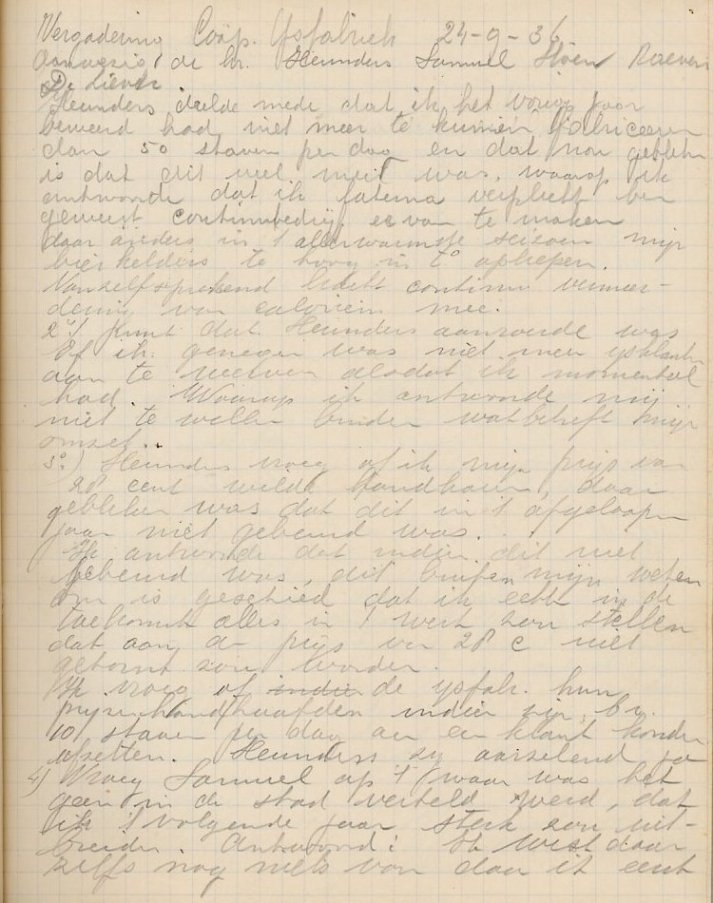 Vergadering Coöp. Ysfabriek 24-9-36
Aanwezig de hr. Heunders Samuel Stoen Roeven
De Liever
Heunders deelde mede dat ik het vorig jaar
beweerd had niet meer te kunnen fabriceeren
dan 50 staven per dag en dat nou gebleken
is dat dit veel meer was, waarop ik
antwoorde dat ik verplicht ben
geweest continubedrijf ervan te maken
daar anders in 't allerwarmste seizoen mijn
bierkelders te hoog in t° opliepen.
Vanzelfsprekend bracht continu vermeer-
dering van calorieën mee.
2° 't punt dat Heunders aanvoerde was
Of ik genegen was niet meer ysklanten
aan te nemen alsdat ik momenteel
had. Waarop ik antwoorde mij
niet te willen binden wat betreft mijn
omzet.
3°.) Heunders vroeg of ik mijn prijs van
28 cent wilde handhaven, daar
gebleken was dat dit in 't afgeloopen
jaar niet gebeurd was.
Ik antwoorde dat indien dit niet
gebeurd was, dit buiten mijn weten
om is geschied dat ik echter in de
toekomst alles in 't werk zou stellen
dat aan de prijs van 28 c niet
getornd zou worden.
Ik vroeg of indien de ysfabr. hun
prijzen handhaafden indien zij bv.
10 staven per dag aan een klant konden
afzetten. Heunders zy aarzelend ja
4) Vroeg Samuel of 't waar was het
geen in de stad verteld werd, dat
ik 't volgende jaar sterk zou uit-
breiden. Antwoord: Ik wist daar
zelfs nog niets van daar ik eerst